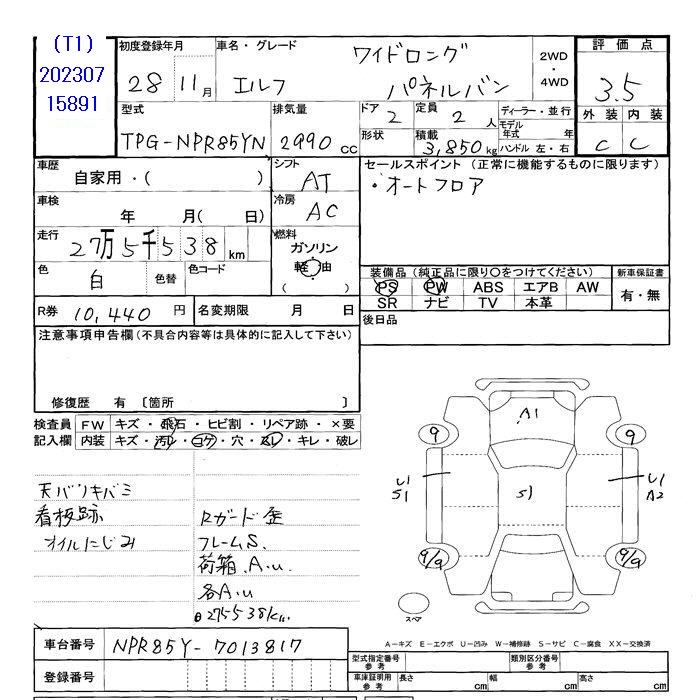 (T1)
202307
15891
初度登録年月
28 11月
車名・グレード
ワイドロング
エルフ パネルバン
2WD
・
4WD
評価点
3.5
外装 内装
C C
型式
TPG-NPR85YN
排気量
2990 cc
ドア
2
定員
2 人
ディーラー・並行
モデル
年式 年
ハンドル 左・右
形状
積載
3,850kg
車歴
自家用・( )
シフト
AT
セールスポイント (正常に機能するものに限ります)
・オートフロア
車検
年 月( 日)
冷房
AC
走行
27万5千538km
燃料
ガソリン
軽油
( )
色
白
色替
色コード
装備品(純正品に限り○をつけてください)
PS PW ABS エアB AW
SR ナビ TV 本革
新車保証書
有・無
R券 10,440 円
名変期限 月 日
後日品
注意事項申告欄(不具合内容等は具体的に記入して下さい)
修復歴 有 〔箇所 〕
検査員 FW キズ・飛石・ヒビ割・リペア跡・×要
記入欄 内装 キズ・汚れ・コゲ・穴・スレ・キレ・破レ
天バリキバミ
看板跡
オイルにじみ
Rガード歪
フレームS.
荷箱.A.u.
各A.u
275538km
A1
9 9
U1
S1
S1
U1
A2
9/9 9/9
スペア
A-キズ E-エクボ U-凹み W-補修跡 S-サビ C-腐食 XX-交換済
車台番号 NPR85Y-7013817
登録番号
型式指定番号
参考
類別区分番号
参考
車庫証明用
参考
長さ cm
幅 cm
高さ cm